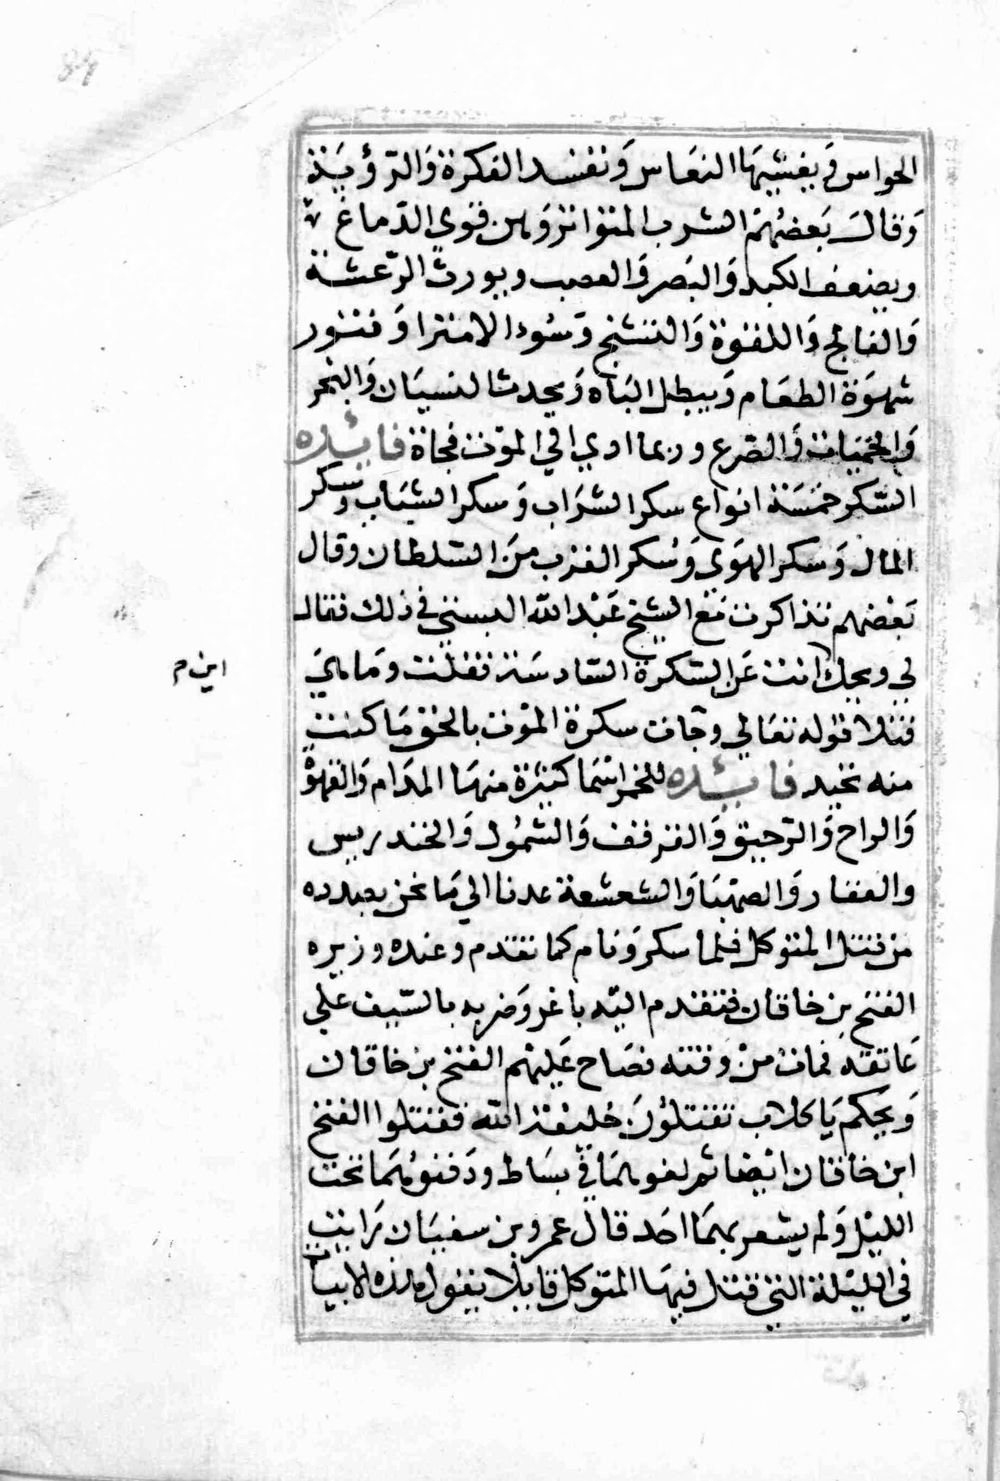 الحواس وَيغشيهَا النعَاس وَتفسد الفكرة وَالرؤيَة
وَقالَ بَعضُهُم الشرب المتواتر يوهن قوي الدّماغ
ويضعف الكبد وَالبَصر وَالعصب ويورث الرّعشة
وَالفالج وَاللقوة وَالتشنج وَسُوء الامترا وَفتور
شهوَة الطعَام وَيبطل البَاه وَيحدث النسيَان وَالبخر
وَالحميَات وَالصّرع وربما ادي الي الموت فجاة فائده
السّكر خمسَة انواع سكر الشرَاب وَسكر الشبَاب وسكر
المال وَسكر الهوَي وَسُكر القرب منَ السّلطان وقال
بَعْضهم تذاكرت مَع الشيخ عَبْد الله البستي في ذلك فقال
لي ويحك انت عَن السّكرة السّادسَة فقلت وَمَا هيَ
اين م
فتلا قوله تعَالي وجَات سكرة الموْت بالحق مَا كنت
منه تحيد فائده للخمر اسْمَا كثيْرة منهَا المدَام وَالقهوَة
وَالراح وَالرّحيق وَالقرقف وَالشمُول وَالخندريس
والعقار وَالصهبَا وَالشعشعة عدنا الي مَا نحن بصدده
من قتل المتوكل فلما سكر وَنام كما تقدم وعنده وزيره
الفتح بن خاقان فتقدم اليْه باغر وَضربه بالسّيف علي
عَاتقه فمات منْ وقته فصَاح عَليْهم الفتح بن خاقان
وَيحكم يَا كلاب تقتلوُنَ خليْفة الله فقتلوا الفتح
ابن خاقان ايْضا ثم لفوهمَا في بسَاط ودَفنوُهمَا تحت
الليْل وَلم يشعر بهمَا احَد قال عمرو بن سفيَان رَايت
في الليْلة التي قتل فيهَا المتوكل قايلا يقول هذه الابيات